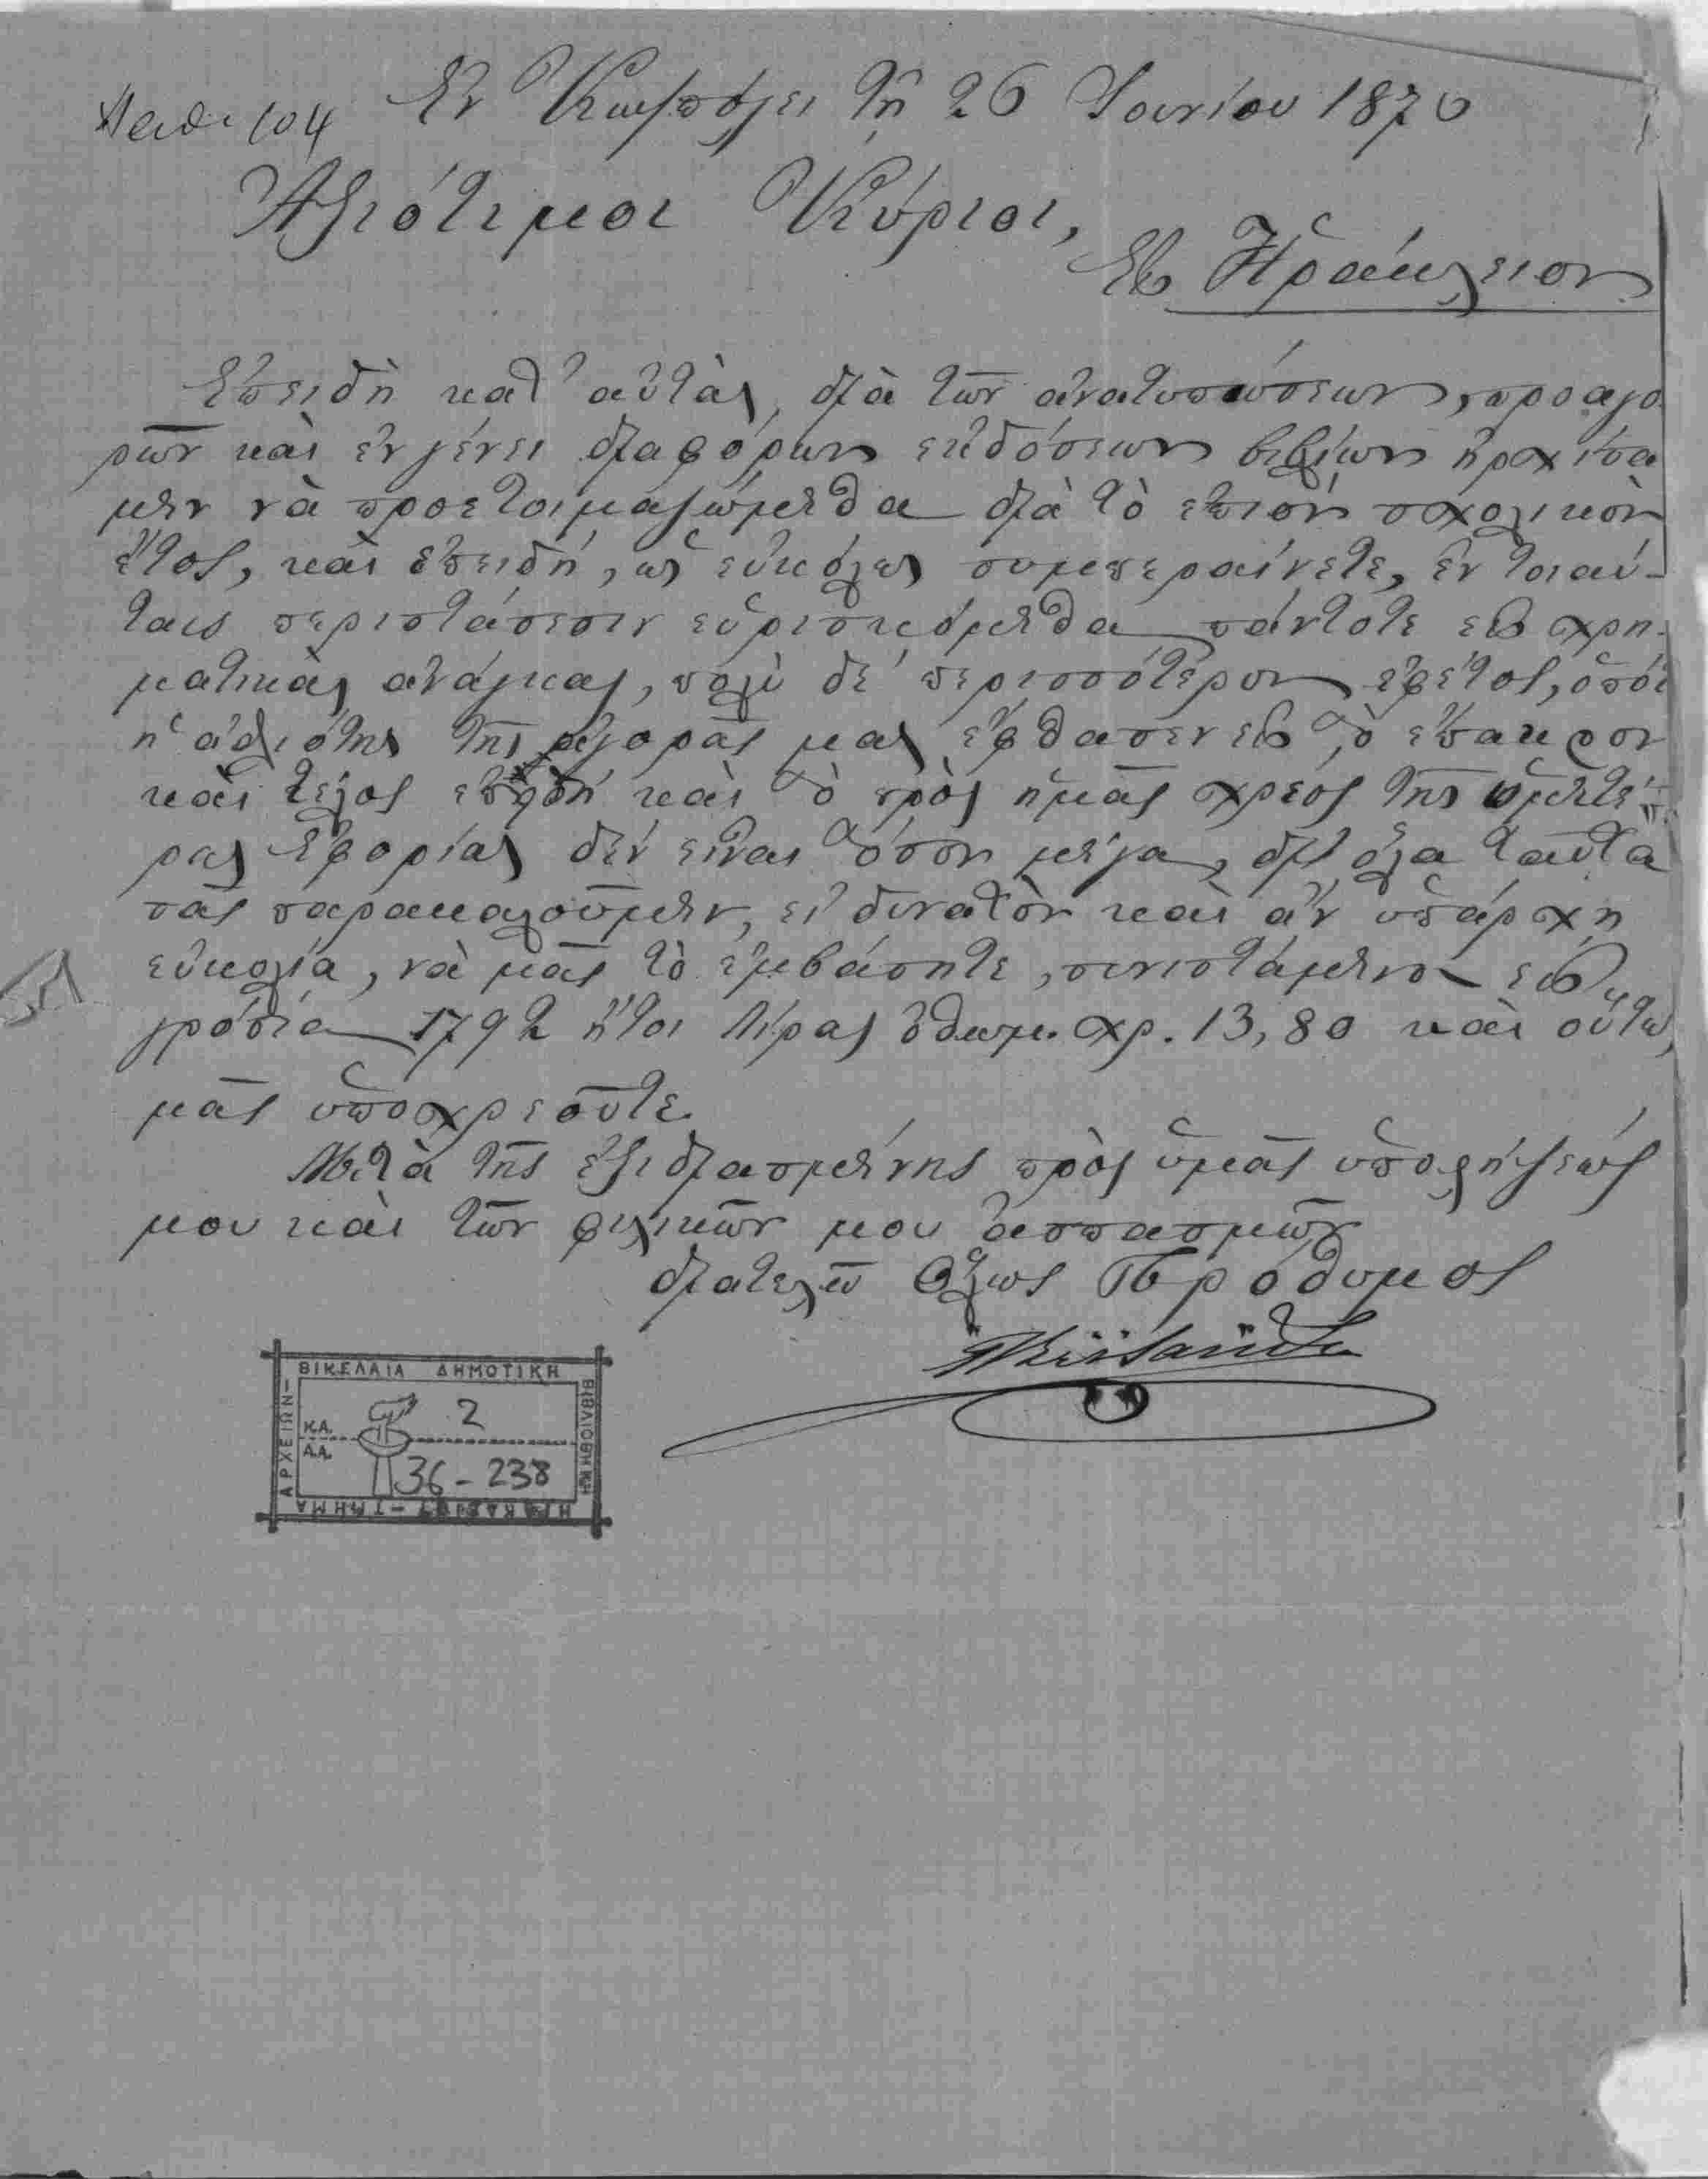 Ἐν Κων/πόλει τῇ 26 Ἰουνίου 1870
Ἀξιότιμοι Κύριοι,
Εἰς Ἡράκλειον
Ἐπειδὴ κατ' αὐτὰς, διὰ τῶν ἀνατυπώσεων, προαγο
ρῶν καὶ ἐν γένει διαφόρων ἐκδόσεων βιβλίων ἠρχίσα
μεν νὰ προετοιμαζώμεθα διὰ τὸ ἐπιὸν σχολικὸν
ἔτος, καὶ ἐπειδή, ὡς εὐκόλως συμπεραίνετε, ἐν τοιαύ-
ταις περιστάσεσιν εὑρισκόμεθα πάντοτε εἰς χρη-
ματικὰς ἀνάγκας, πολὺ δὲ περισσότερον ἐφέτος, ὁπότε
ἡ ἀθλιότης τῆς ἀγορᾶς μας ἔφθασεν εἰς τὸ ἔπακρον
καὶ τέλος ἐπειδὴ καὶ τὸ πρὸς ἡμᾶς χρέος τῆς ὑμετέ-
ρας Ἐφορίας δὲν εἶναι τόσον μέγα, δι' ὅλα ταῦτα
σᾶς παρακαλοῦμεν, εἰ δυνατὸν καὶ ἂν ὑπάρχῃ
εὐκολία, νὰ μᾶς τὸ ἐμβάσητε, συνιστάμενον εἰς
γρόσια 1792 ἤτοι λίρας ὀθωμ. χρ. 13,80 καὶ οὕτω
μᾶς ὑποχρεοῦτε.
Μετὰ τῆς ἐξιδιασμένης πρὸς ὑμᾶς ὑπολήψεώς
μου καὶ τῶν φιλικῶν μου ἀσπασμῶν
διατελῶ ὅλως Πρόθυμος
ΒΙΚΕΛΑΙΑ ΔΗΜΟΤΙΚΗ
ΒΙΒΛΙΟΘΗΚΗ
ΤΜΗΜΑ
ΑΡΧΕΙΩΝ
Κ.Α. 2
Α.Α. 36-238